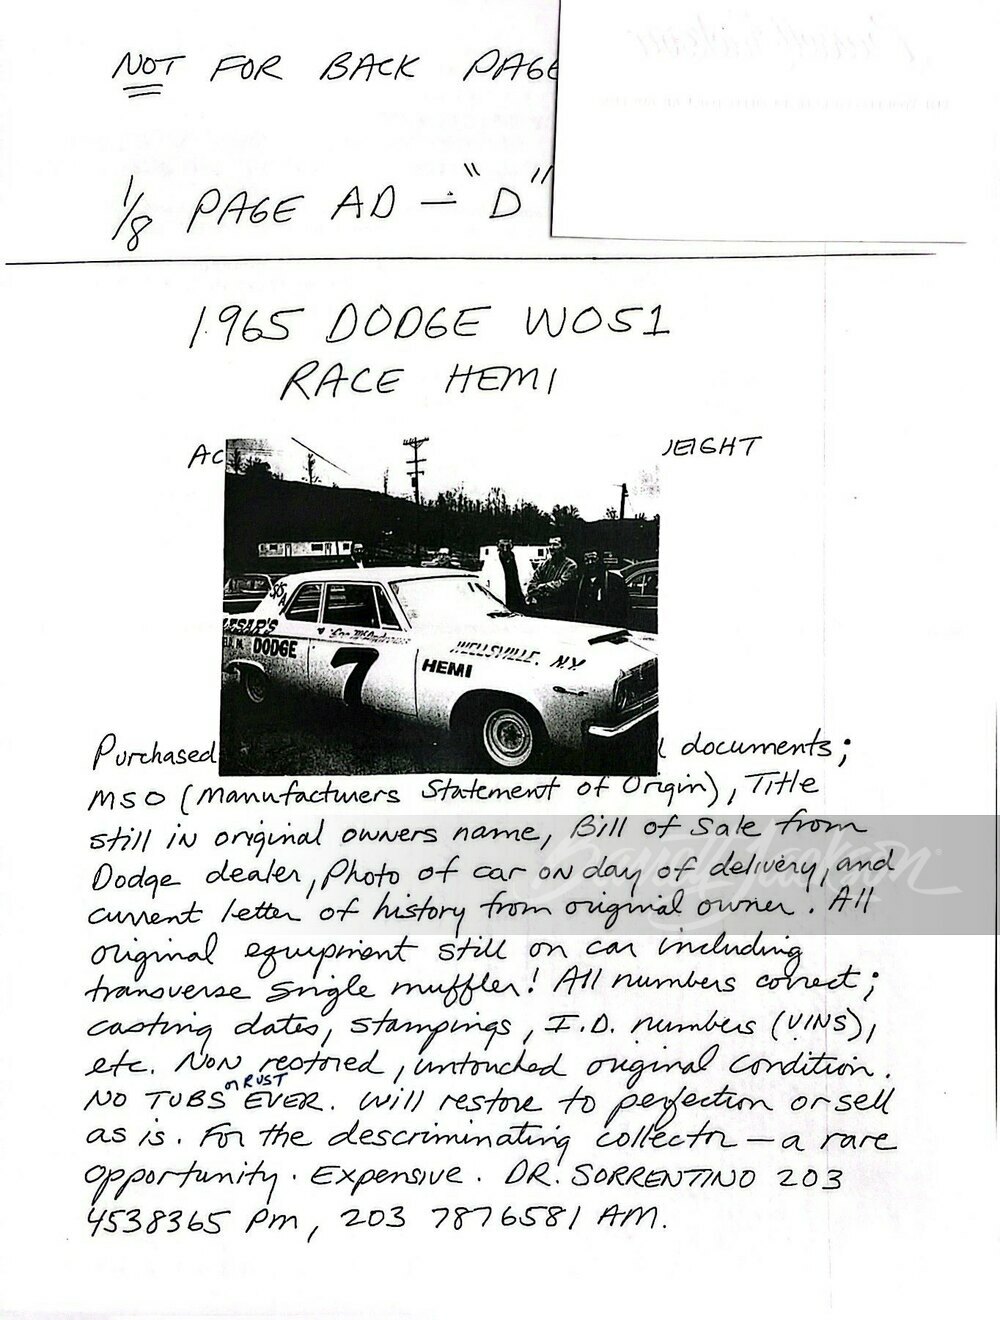 NOT FOR BACK PAGE
1/8 PAGE AD — "D"
1965 DODGE WO51
RACE HEMI
AC EIGHT
SS/A
ESAR'S
DODGE
7
HEMI
WELLSVILLE, N.Y.
Purchased documents;
MSO (Manufacturers Statement of Origin), Title
still in original owners name, Bill of Sale from
Dodge dealer, Photo of car on day of delivery, and
current letter of history from original owner. All
original equipment still on car including
transverse single muffler! All numbers correct;
casting dates, stampings, I.D. numbers (VINS),
etc. Non restored, untouched original condition.
NO TUBS or RUST EVER. Will restore to perfection or sell
as is. For the descriminating collector — a rare
opportunity. Expensive. DR. SORRENTINO 203
4538365 Pm, 203 7876581 AM.
Barrett-Jackson